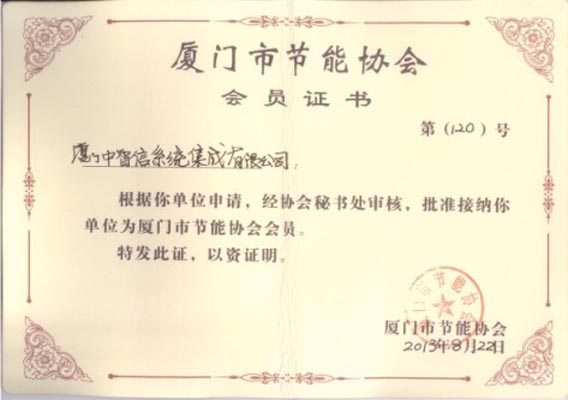 厦门市节能协会
会员证书
第(120)号
厦门中智信系统集成有限公司:
根据你单位申请,经协会秘书处审核,批准接纳你
单位为厦门市节能协会会员。
特发此证,以资证明。
厦门市节能协会
厦门市节能协会
2013年8月22日